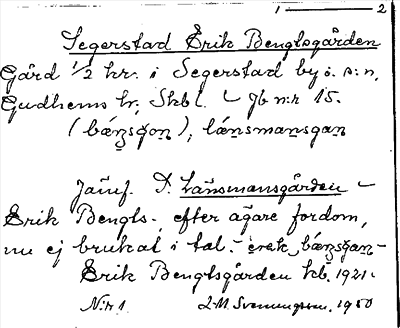 1 ——— 2
Segerstad Erik Bengtsgården
Gård 1/2 hr. i Segerstad by i. s:n,
Gudhems hr, Skbl. – Jb n:r 15.
(bæŋsgoṇ), lánsmansgaṇ
Jämf. D. Länsmansgården –
Erik Bengts-, efter ägare fordom,
nu ej brukat i tal. – bæŋsgaṇ –
Erik Bengtsgården kb. 1921.
N:r 1 1950